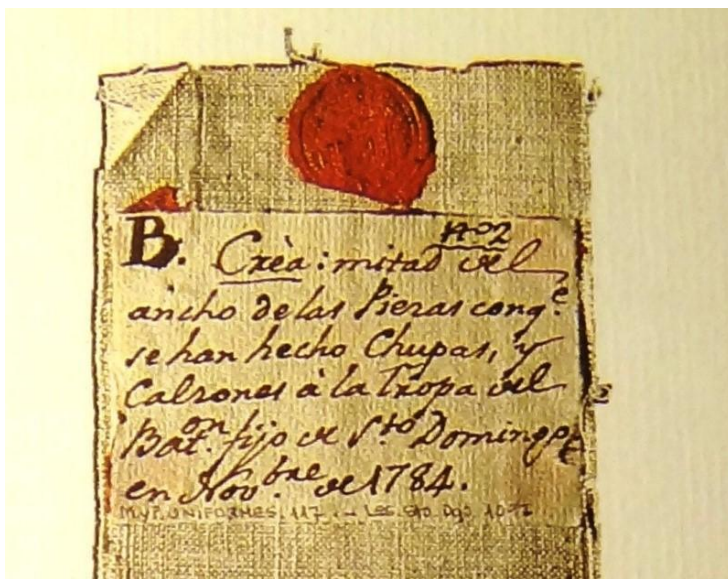 Nº2
B. Crèa: mitad del
ancho de las Piezas conq.e
se han hecho Chupas, y
Calzones à la Tropa del
Bat.on fijo de S.to Domingo
en Nov.bre de 1784.
MYP. UNIFORMES. 117. - Leg. Sto. Dgo. 1092